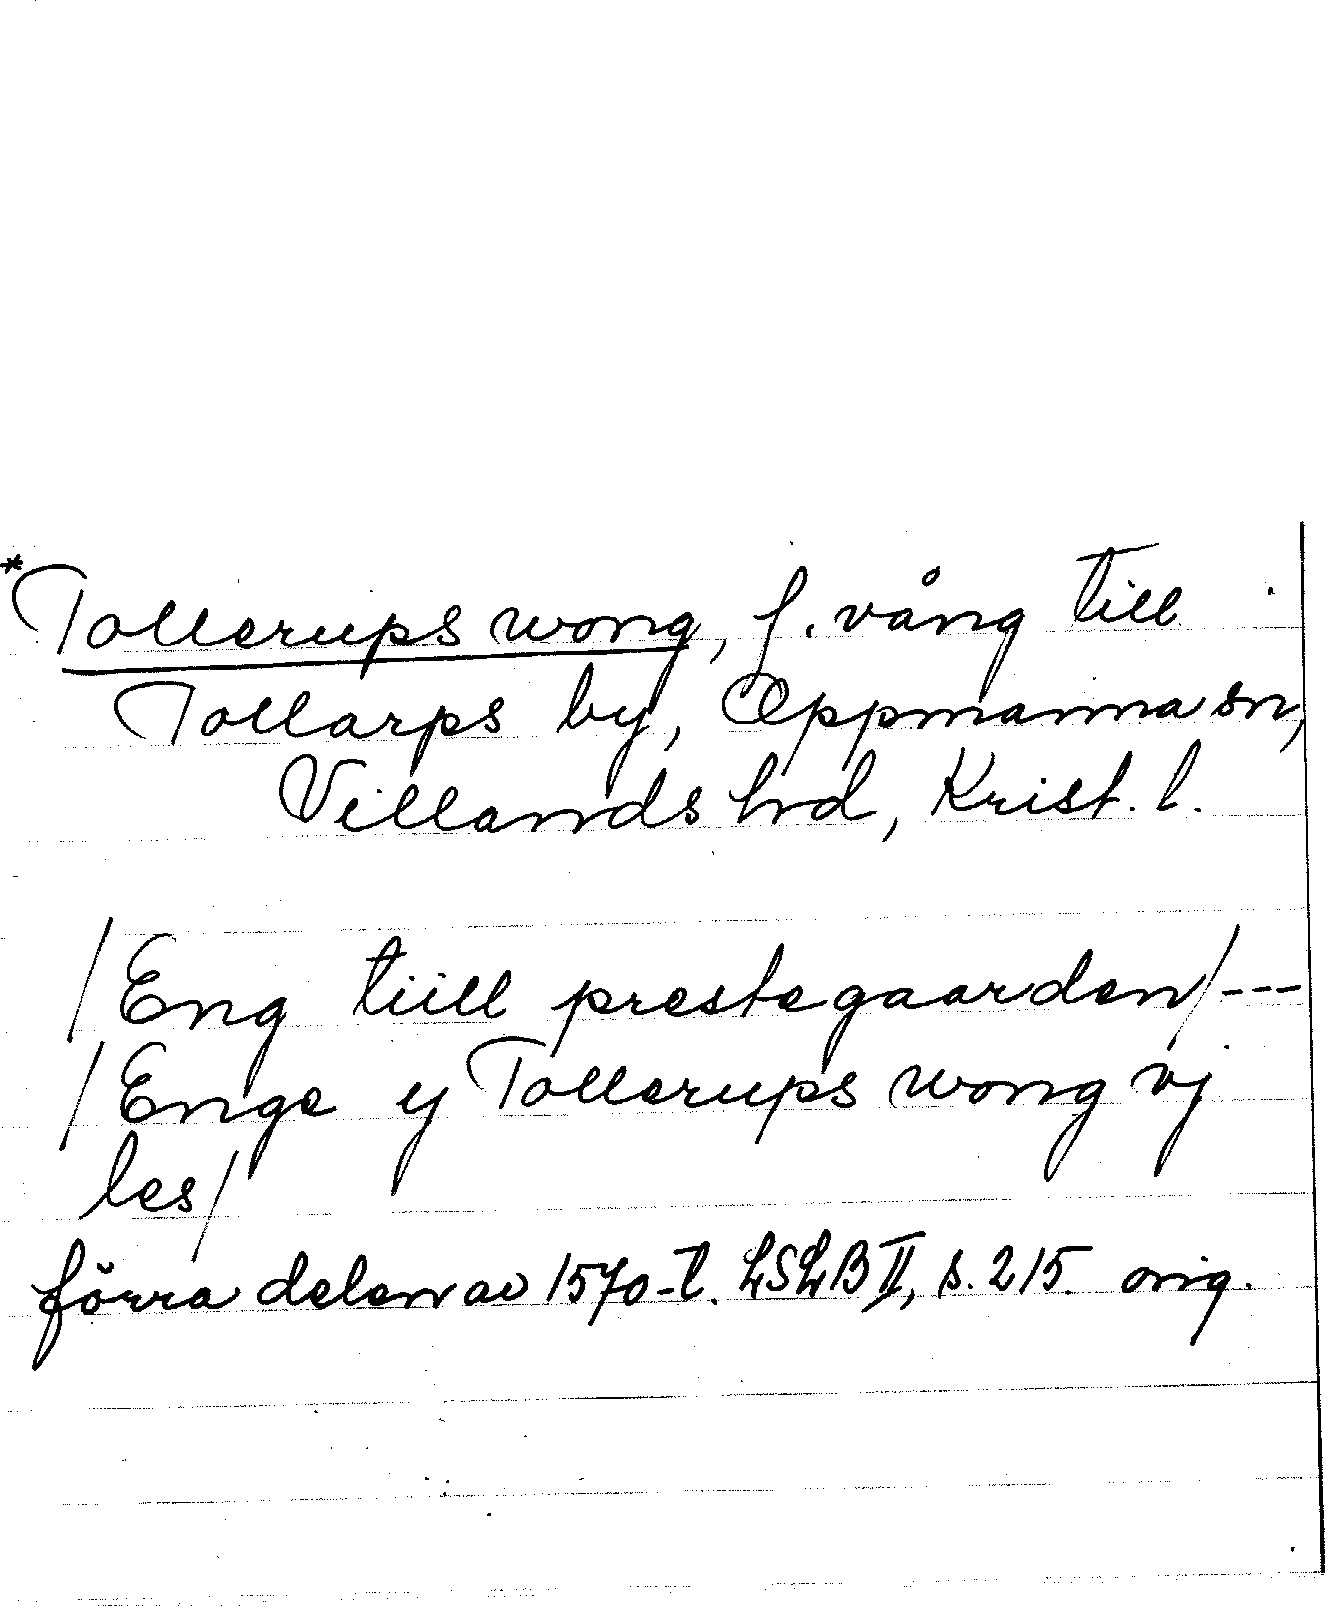 *Tollerups wong, f. vång till
Tollarps by, Oppmanna sn,
Villands hrd, Krist. l.
/Eng tiill prestegaarden/---
/Enge y Tollerups wong vj
les/
förra delen av 1570-t. LSLB II, s. 215. orig.